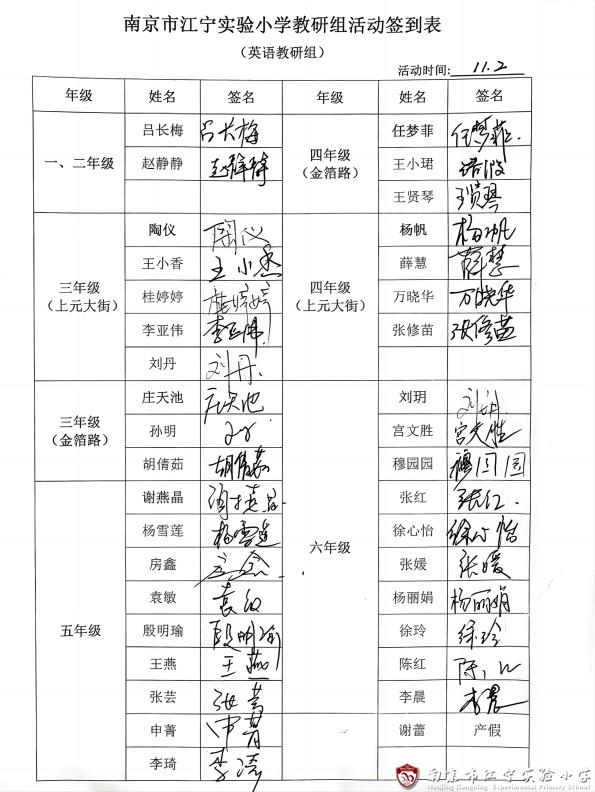 南京市江宁实验小学教研组活动签到表
（英语教研组）
活动时间: 11.2
年级 姓名 签名 年级 姓名 签名
一、二年级
吕长梅 吕长梅
赵静静 赵静静
四年级
（金箔路）
任梦菲 任梦菲.
王小珺
王贤琴
三年级
（上元大街）
陶仪 陶仪
王小香 王小香
桂婷婷 桂婷婷
李亚伟 李亚伟
刘丹 刘丹
四年级
（上元大街）
杨帆 杨帆
薛慧 薛慧
万晓华 万晓华
张修苗 张修苗
三年级
（金箔路）
庄天池 庄天池
孙明
胡倩茹 胡倩茹
五年级
谢燕晶
杨雪莲 杨雪莲
房鑫
袁敏 袁敏
殷明瑜 殷明瑜
王燕 王燕
张芸 张芸
申菁 申菁
李琦 李琦
六年级
刘玥 刘玥
宫文胜 宫文胜
穆园园 穆园园
张红 张红.
徐心怡 徐心怡
张媛 张媛
杨丽娟 杨丽娟
徐玲 徐玲
陈红
李晨 李晨
谢蕾 产假
南京市江宁实验小学
Nanjing Jiangning Experimental Primary School